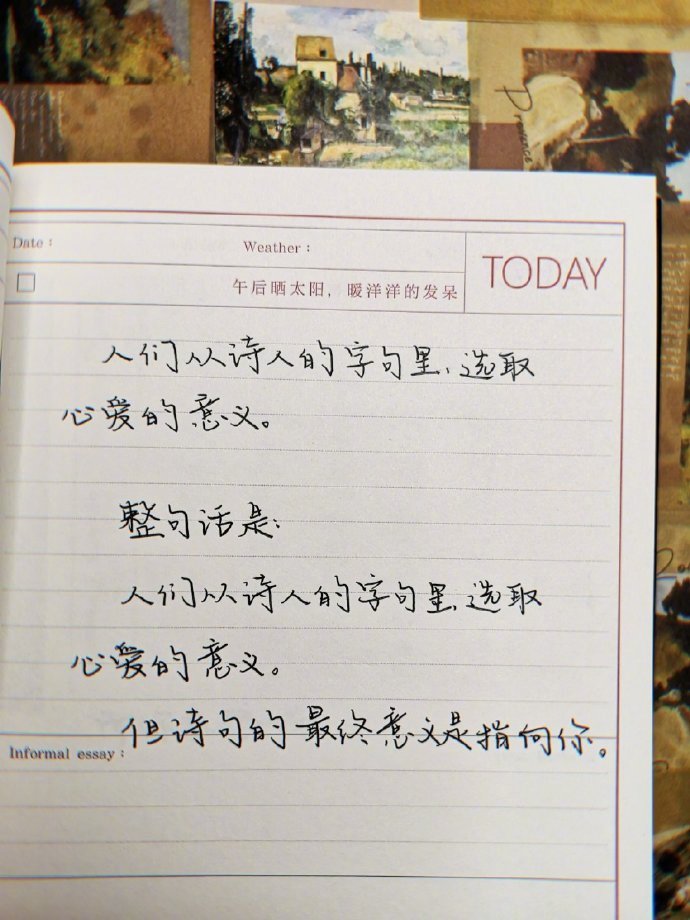 Date：
Weather：
TODAY
午后晒太阳，暖洋洋的发呆
人们从诗人的字句里、选取
心爱的意义。
整句话是：
人们从诗人的字句里、选取
心爱的意义。
但诗句的最终意义是指向你。
Informal essay：